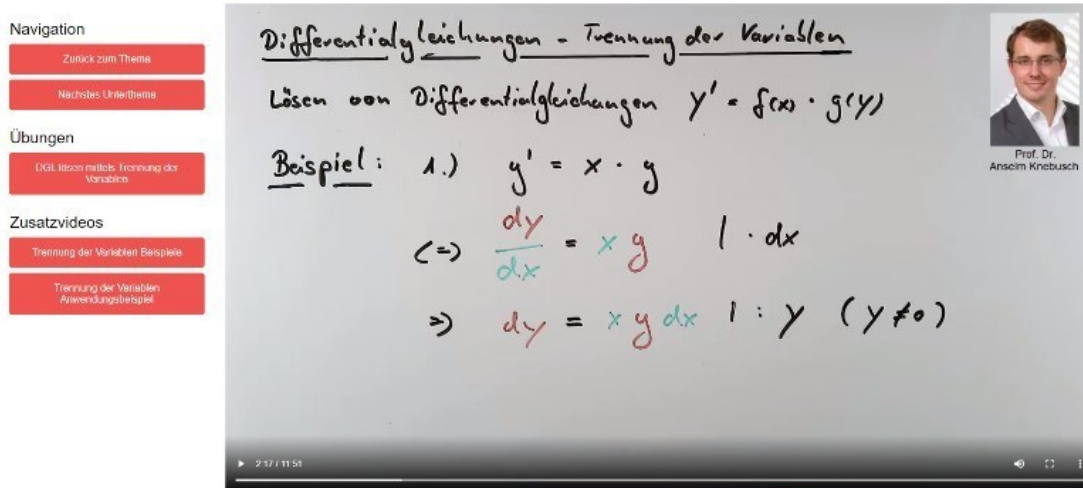 Navigation
Zurück zum Thema
Nächstes Unterthema
Übungen
DGL lösen mittels Trennung der
Variablen
Zusatzvideos
Trennung der Variablen Beispiele
Trennung der Variablen
Anwendungsbeispiel
Differentialgleichungen - Trennung der Variablen
Lösen von Differentialgleichungen y' = f(x) · g(y)
Beispiel: 1.) y' = x · y
(=) dy/dx = x y | · dx
=) dy = x y dx | : y (y ≠ 0)
Prof. Dr.
Anselm Knebusch
2:17 / 11:51